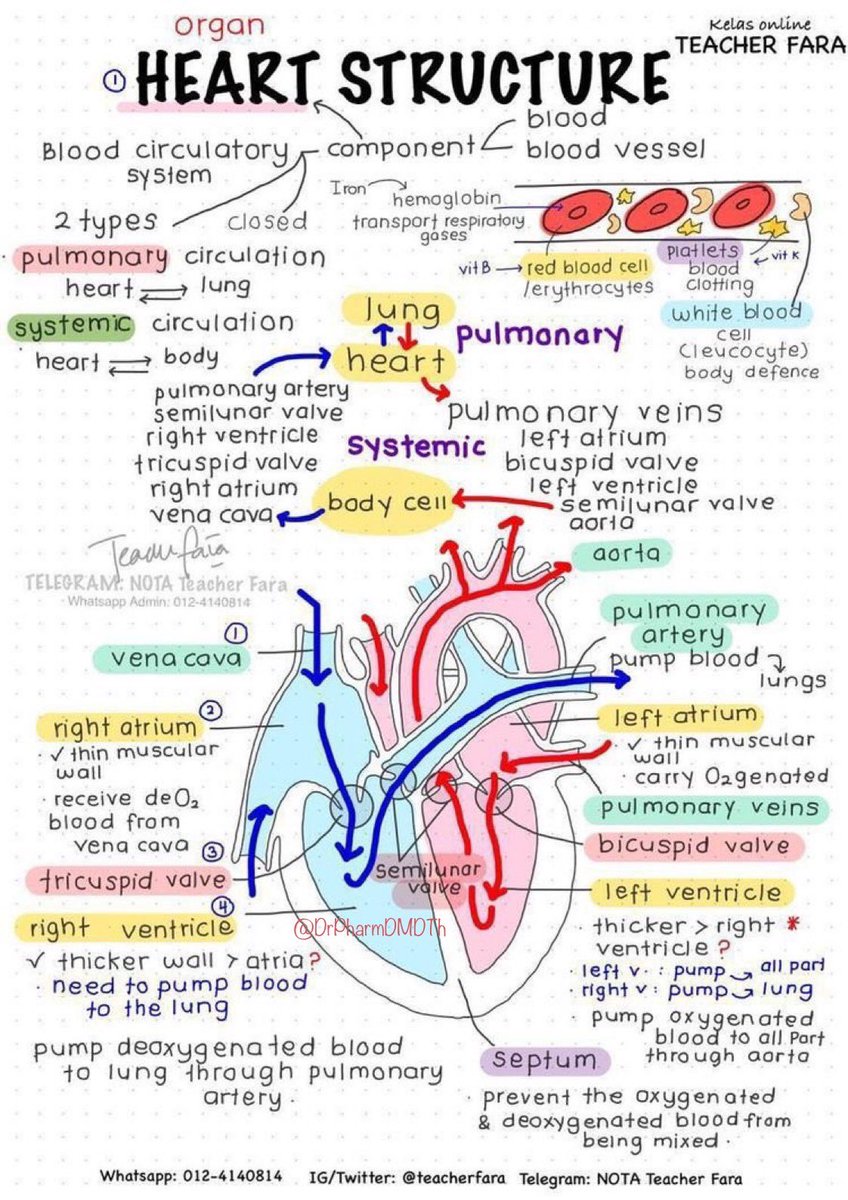 organ
Kelas online
TEACHER FARA
① HEART STRUCTURE
Blood circulatory system
component
blood
blood vessel
2 types
closed
pulmonary circulation
heart ⇌ lung
systemic circulation
heart ⇌ body
Iron
hemoglobin
transport respiratory
gases
vit B → red blood cell
/erythrocytes
Platlets
blood
clotting
vit K
white blood
cell
(leucocyte)
body defence
lung
heart
pulmonary
pulmonary artery
semilunar valve
right ventricle
tricuspid valve
right atrium
vena cava
systemic
body cell
pulmonary veins
left atrium
bicuspid valve
left ventricle
semilunar valve
aorta
Teacher Fara
TELEGRAM: NOTA Teacher Fara
Whatsapp Admin: 012-4140814
①
vena cava
②
right atrium
✓ thin muscular
wall
· receive deO₂
blood from
vena cava
③
tricuspid valve
④
right ventricle
✓ thicker wall > atria?
· need to pump blood
to the lung
pump deoxygenated blood
to lung through pulmonary
artery.
aorta
pulmonary
artery
pump blood
lungs
left atrium
· ✓ thin muscular
wall
· carry O₂genated
pulmonary veins
bicuspid valve
semilunar
valve
left ventricle
@DrPharmDMDTh
· thicker > right *
ventricle?
· left v. : pump → all part
· right v : pump → lung
· pump oxygenated
blood to all part
through aorta
septum
· prevent the oxygenated
& deoxygenated blood from
being mixed.
Whatsapp: 012-4140814 IG/Twitter: @teacherfara Telegram: NOTA Teacher Fara